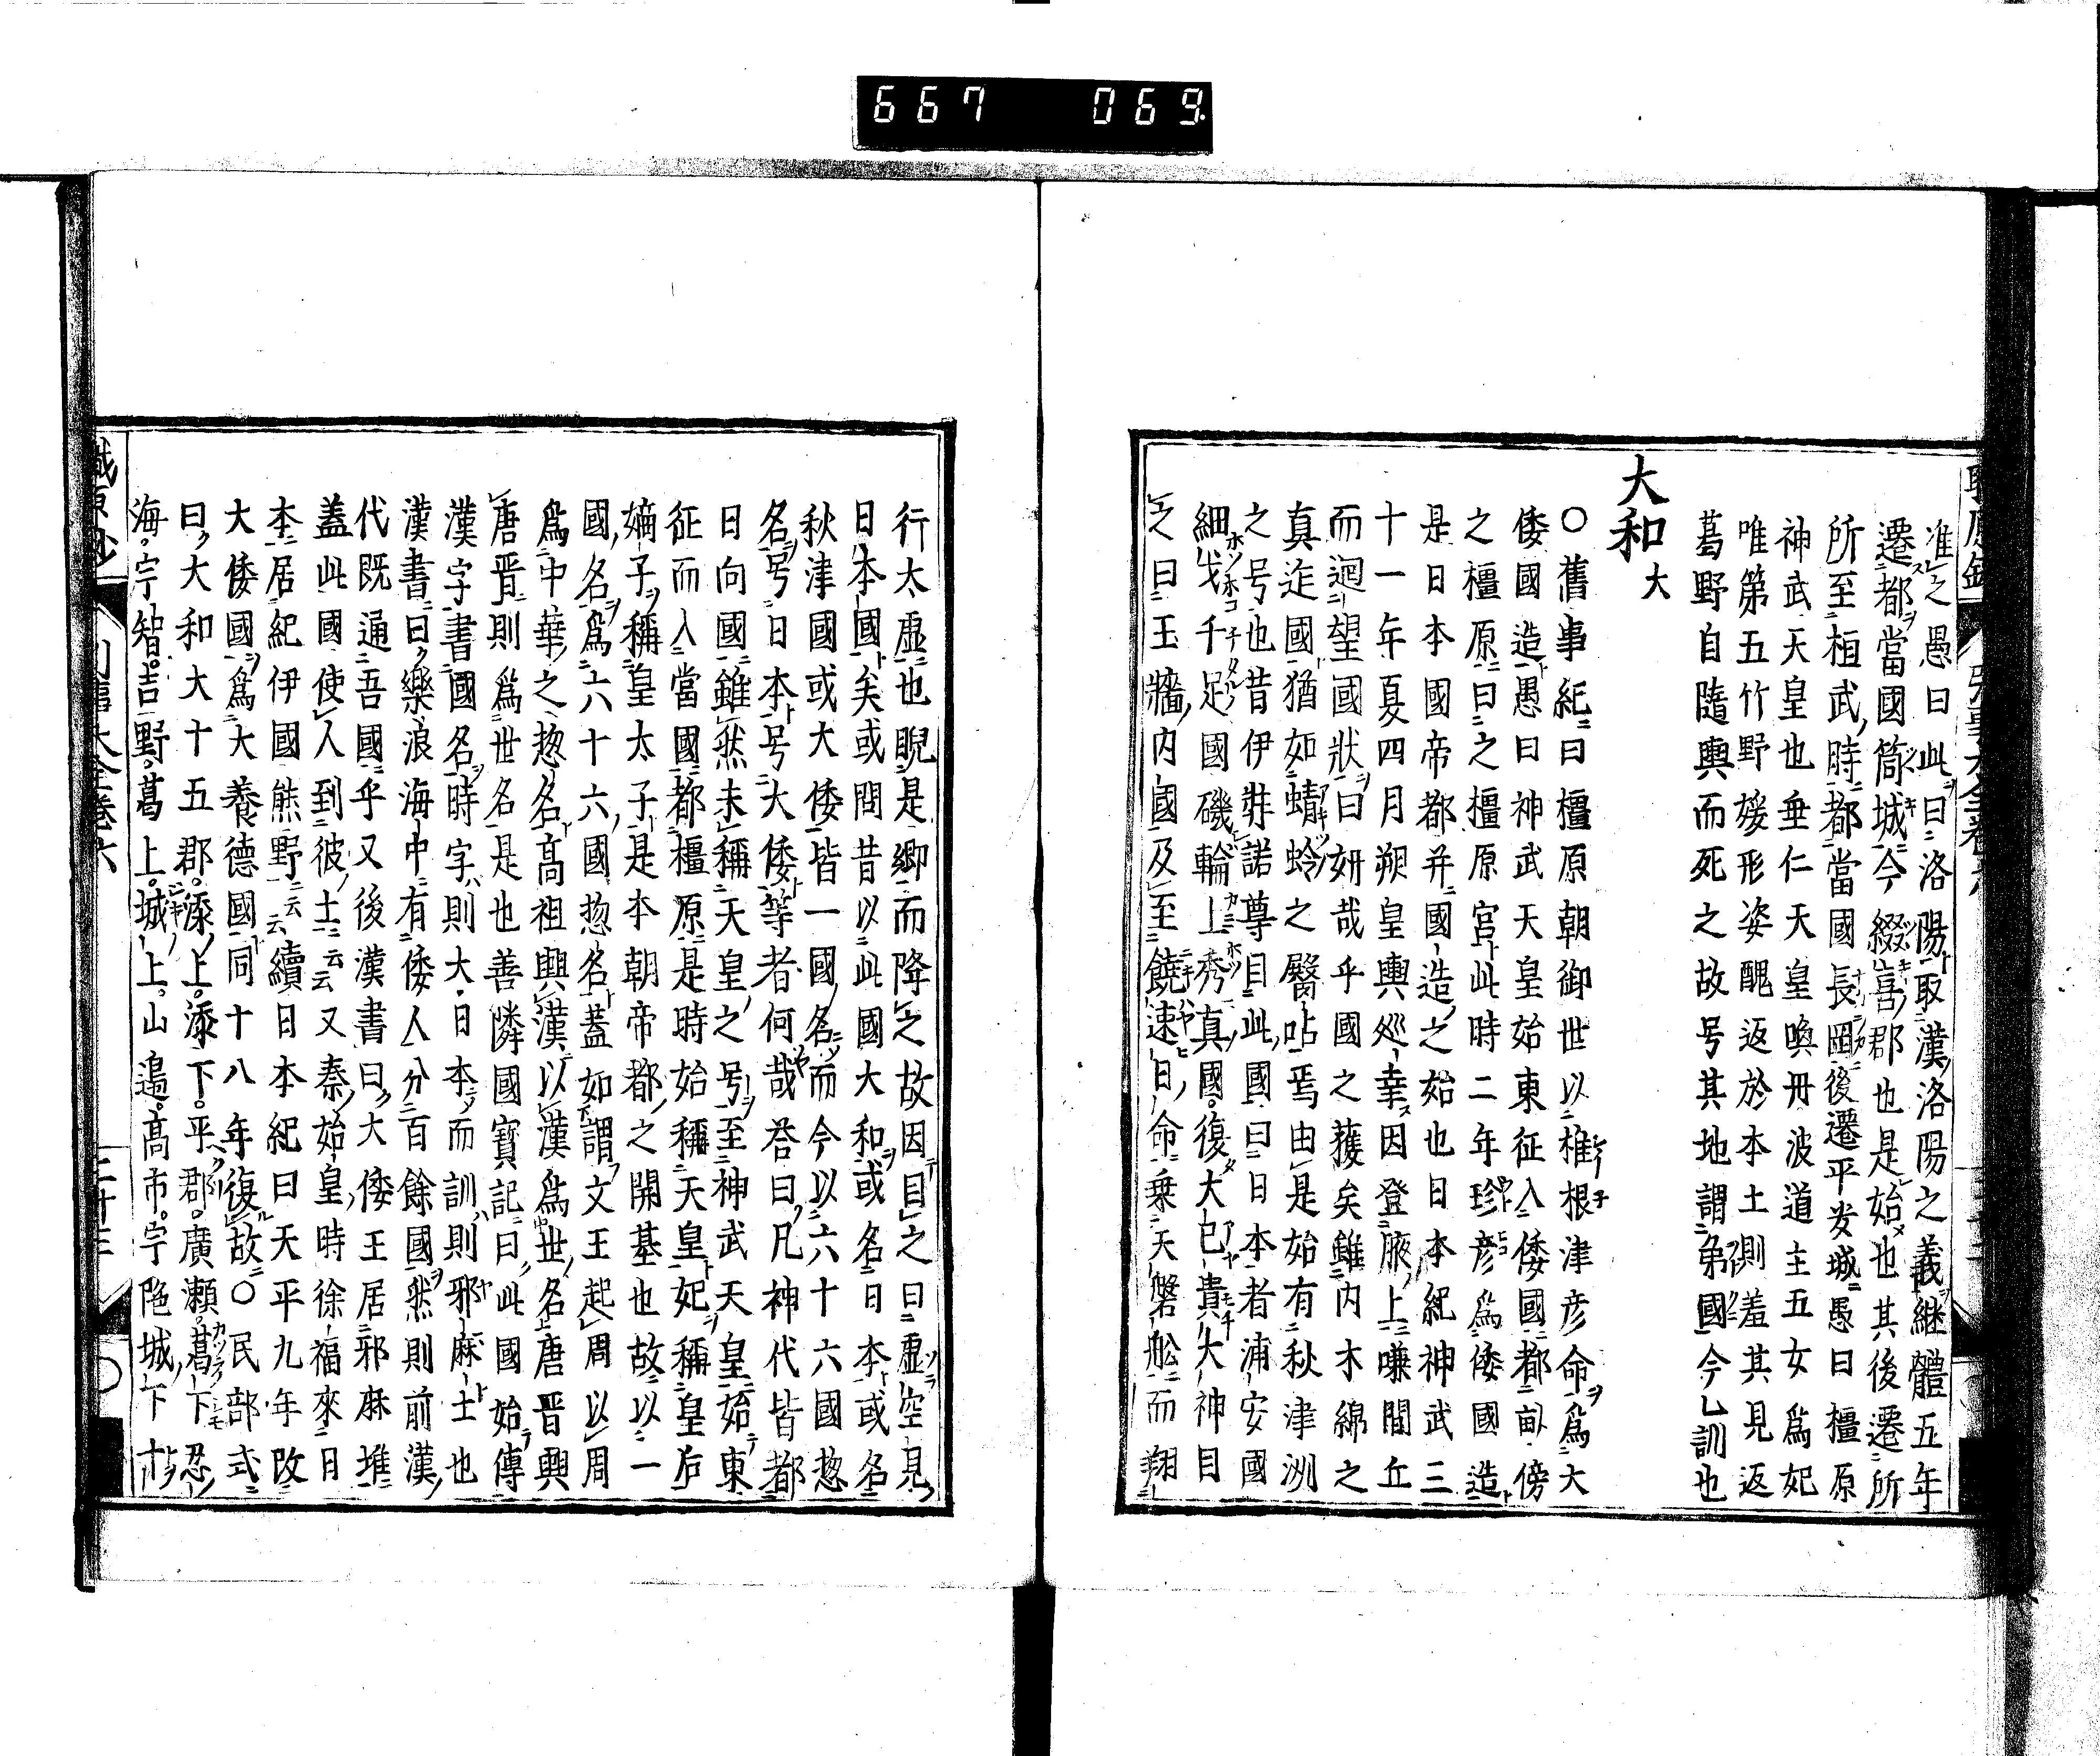 667 069
准之愚曰此曰洛陽取漢洛陽之義継體五年
遷都當國筒城今綴喜郡也是始也其後遷所
所至桓武時都當國長岡後遷平安城愚曰橿原
神武天皇也垂仁天皇喚丹波道主五女為妃
唯第五竹野媛形姿醜返於本土則羞其見返
葛野自隨輿而死之故号其地謂弟國今乙訓也
大和大
〇舊事紀曰橿原朝御世以椎根津彦命為大
倭國造愚曰神武天皇始東征入倭國都畝傍
之橿原曰之橿原宮此時二年珍彦為倭國造
是日本國帝都并國造之始也日本紀神武三
十一年夏四月朔皇輿巡幸因登腋上嗛間丘
而廻望國狀曰姸哉乎國之獲矣雖内木綿之
真迮國猶如蜻蛉之臀呫焉由是始有秋津洲
之号也昔伊弉諾尊目此國曰日本者浦安國
細戈千足國磯輪上秀真國復大已貴大神目
之曰玉牆内國及至饒速日命乗天磐舩而翔
行太虚也睨是郷而降之故因目之曰虚空見
日本國矣或問昔以此國大和或名日本或名
秋津國或大倭皆一國名而今以六十六國惣
名号日本号大倭等者何哉答曰凡神代皆都
日向國雖然未稱天皇之号至神武天皇始東
征而入當國都橿原是時始稱天皇妃稱皇后
嫡子稱皇太子是本朝帝都之開基也故以一
國名為六十六國惣名蓋如謂文王起周以周
為中華之惣名高祖興漢以漢為世名唐晋興
唐晋則為世名是也善隣國寳記曰此國始傳
漢字書國名時字則大日本而訓則邪麻土也
漢書曰樂浪海中有倭人分百餘國然則前漢
代既通吾國乎又後漢書曰大倭王居邪麻堆
蓋此國使人到彼土云云又秦始皇時徐福來日
本居紀伊國熊野云云續日本紀曰天平九年改
大倭國為大養德國同十八年復故〇民部式
曰大和大十五郡添上添下平群廣瀬葛下忍
海宇智吉野葛上城上山邉高市宇陁城下十市